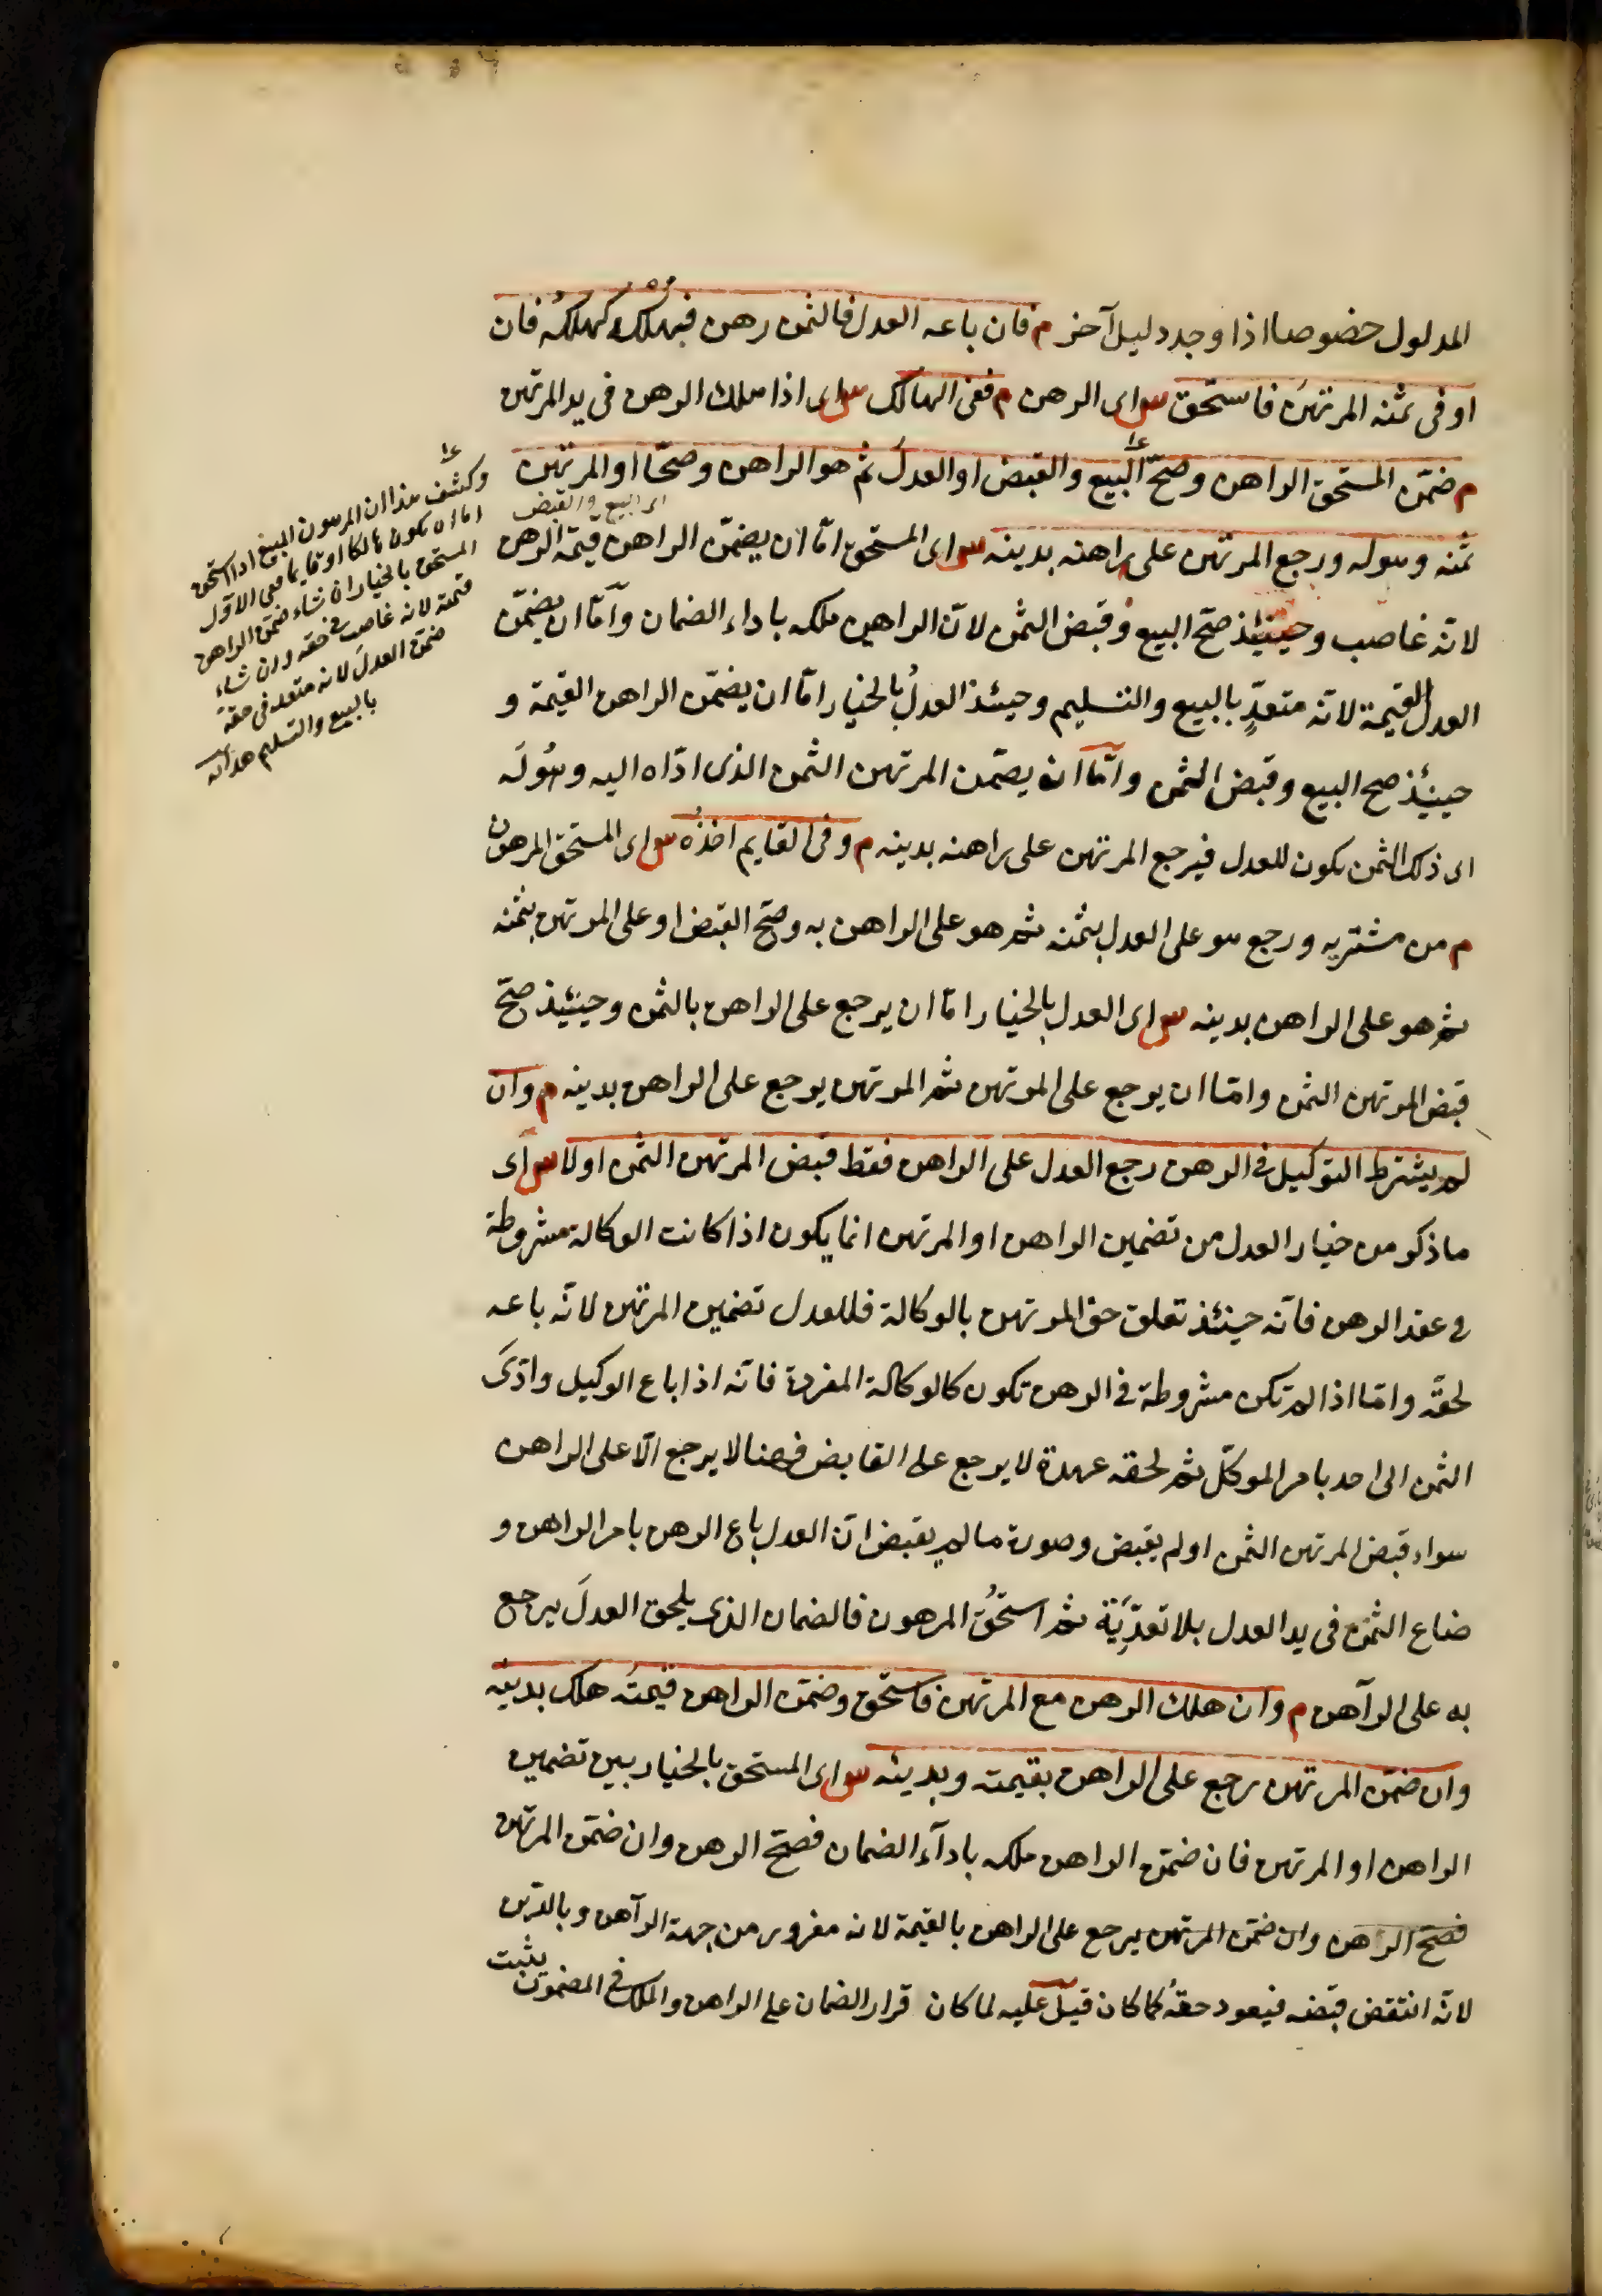 المدلول خصوصا اذا وجد دليل آخر م فان باعه العدل فالثمن رهن فهلكه كهلكه فان
اوفى ثمنه المرتهن فاستحق س اى الرهن م ففى الهالك س اى اذا هلك الرهن فى يد المرتهن
م ضمّن المستحق الراهن وصحّ البيع والقبض او العدل ثم هو الراهن وصحّا او المرتهن
اى البيع والقبض
ثمنه وهو له ورجع المرتهن على راهنه بدينه س اى المستحق امّا ان يضمّن الراهن قيمة الرهن
لانّه غاصب وحينئذ صحّ البيع وقبض الثمن لانّ الراهن ملكه باداء الضمان وامّا ان يضمّن
العدل القيمة لانّه متعدٍّ بالبيع والتسليم وحينئذ العدلُ بالخيار امّا ان يضمّن الراهن القيمة و
حينئذ صح البيع وقبض الثمن وامّا ان يضمّن المرتهن الثمن الذى ادّاه اليه وهُو لَه
اى ذلك الثمن يكون للعدل فيرجع المرتهن على راهنه بدينه م وفى القايم اخذهُ س اى المستحق المرهون
م من مشتريه ورجع هو على العدل بثمنه ثم هو على الراهن به وصحّ القبض او على المرتهن بثمنه
ثم هو على الراهن بدينه س اى العدل بالخيار امّا ان يرجع على الراهن بالثمن وحينئيذ صحّ
قبض المرتهن الثمن وامّا ان يرجع على المرتهن ثم المرتهن يرجع على الراهن بدينه م وان
لم يشترط التوكيل فى الرهن رجع العدل على الراهن فقط قبض المرتهن الثمن او لا س اى
ما ذكر من خيار العدل من تضمين الراهن او المرتهن انما يكون اذا كانت الوكالة مشروطة
فى عقد الرهن فانّه حينئذ تعلق حق المرتهن بالوكالة فللعدل تضمين المرتهن لانّه باعه
لحقّه وامّا اذا لم تكن مشروطة فى الرهن تكون كالوكالة المفردة فانّه اذا باع الوكيل وادّى
الثمن الى احد بامر الموكّل ثم لحقه عهدة لا يرجع على القابض فههنا لا يرجع الّا على الراهن
سواء قبض المرتهن الثمن او لم يقبض وصورة ما لم يقبض انّ العدل باع الرهن بامر الراهن و
ضاع الثمن فى يد العدل بلا تعدّيه ثم استحُقّ المرهون فالضمان الذى يلحق العدلَ يرجع
به على الراهن م وان هلك الرهن مع المرتهن فاستحق وضمّن الراهن قيمتُه هلك بدينه
وان ضمّن المرتهن رجع على الراهن بقيمته وبدينه س اى المستحق بالخيار بين تضمين
الراهن او المرتهن فان ضمّن الراهن ملكه باداء الضمان فصحّ الرهن وان ضمّن المرتهن
فصحّ الراهن وان ضمّن المرتهن يرجع على الراهن بالقيمة لانه مغرور من جهة الراهن وبالدّين
لانّه انتقض قبضه فيعود حقهُ كما كان قيل عليه لما كان قرار الضمان على الراهن والملك فى المضمون يثبت
وكشف هذا ان المرهون المبيع اذا استحق
اما ان يكون هالكا او قايما ففى الاول
المستحق بالخيار ان شاء ضمّن الراهن
قيمته لانه غاصب فى حقه وان شاء
ضمّن العدل لانه متعد فى حقه
بالبيع والتسليم هدايه